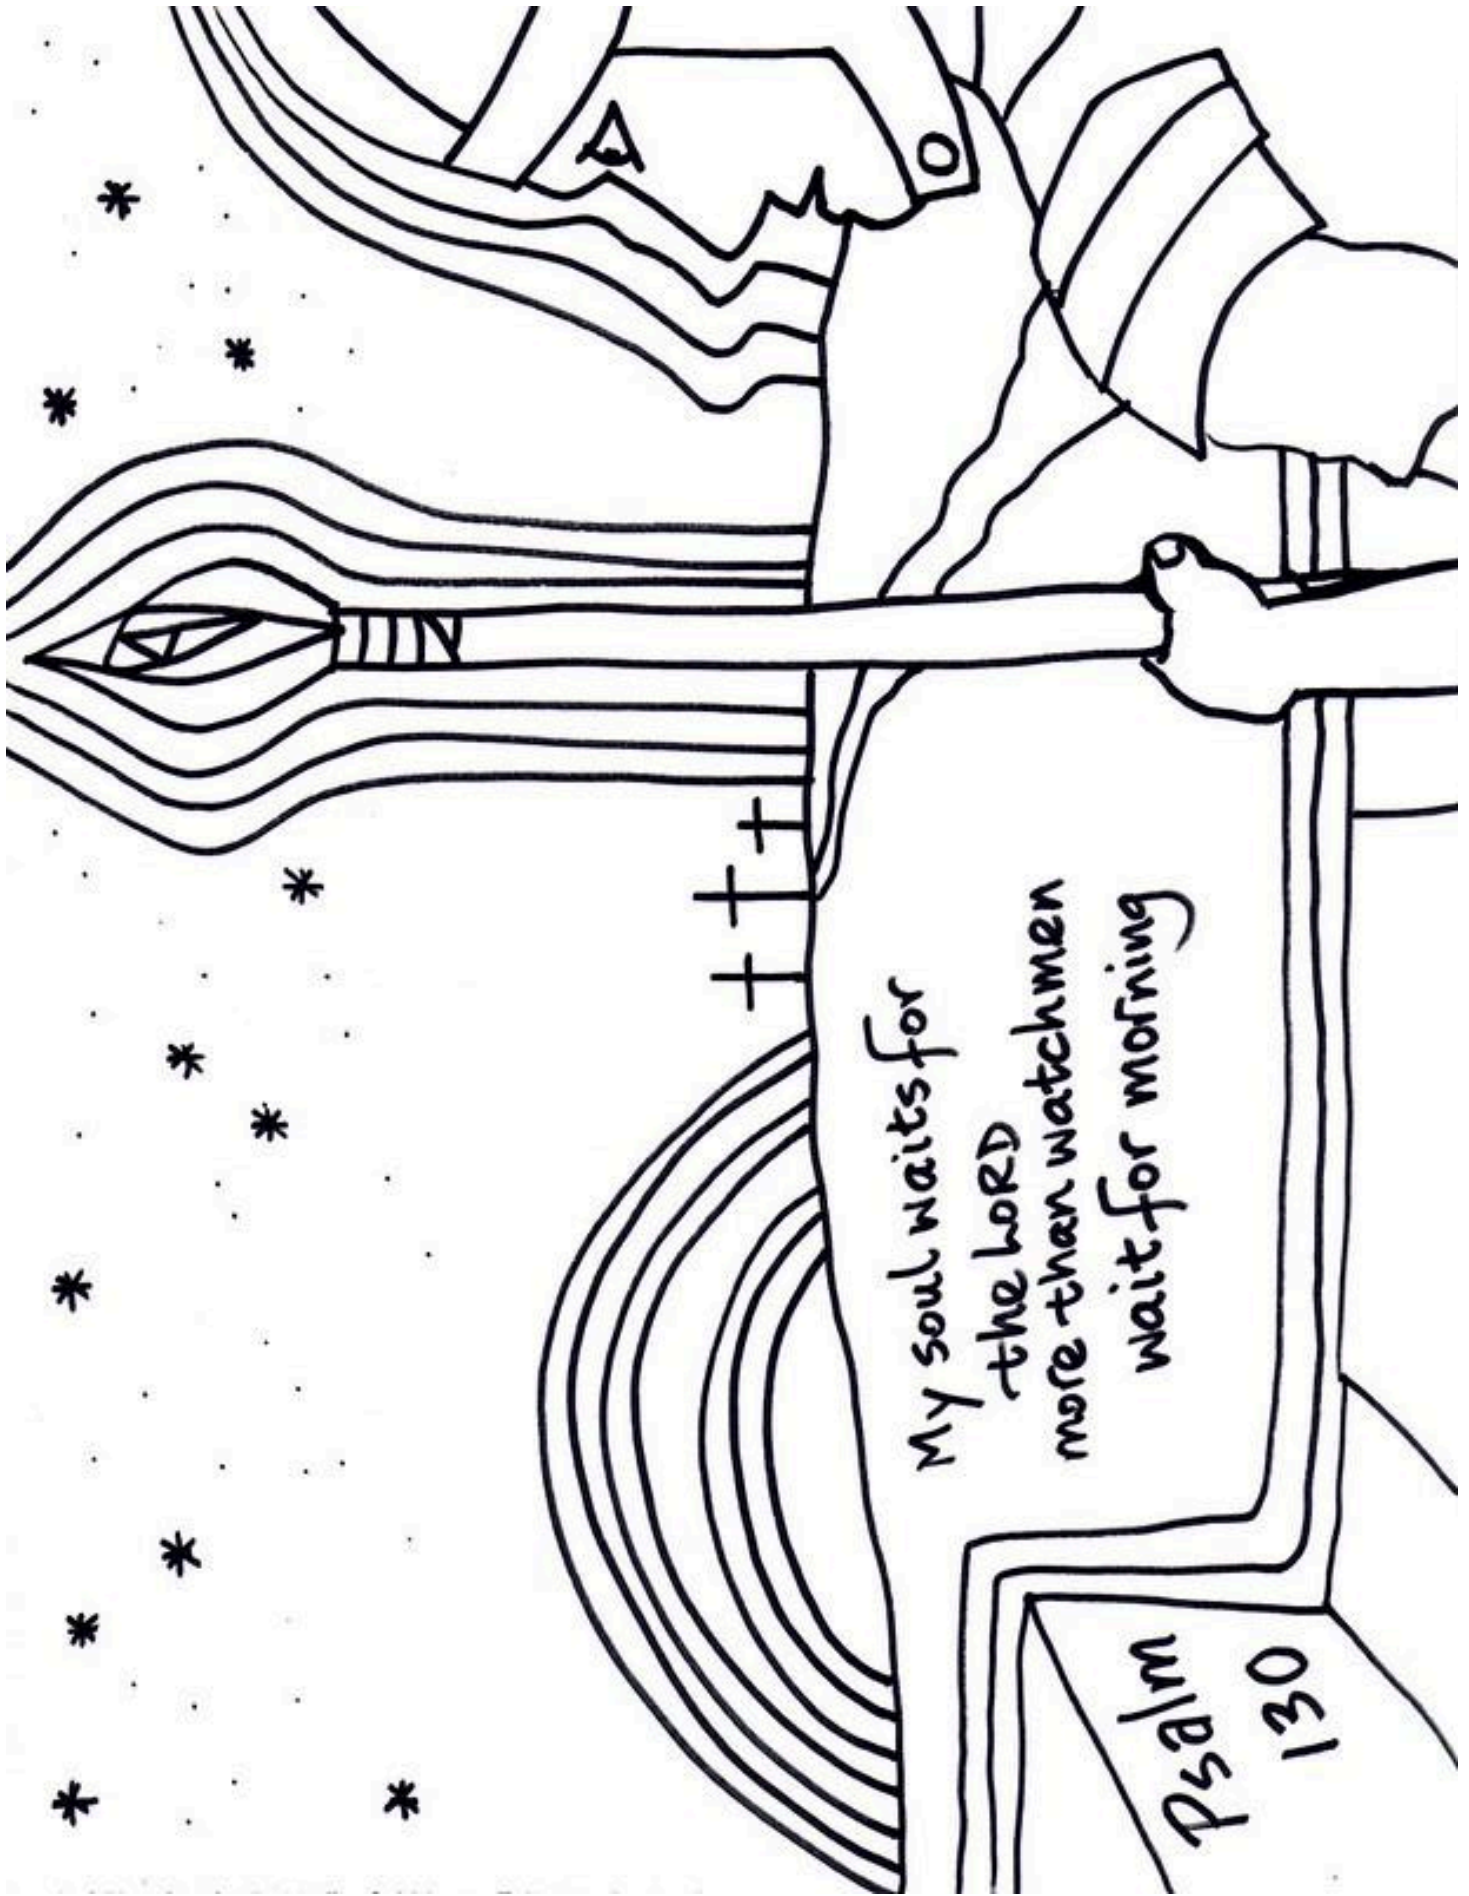 My soul waits for
the LORD
more than watchmen
wait for morning
Psalm
130